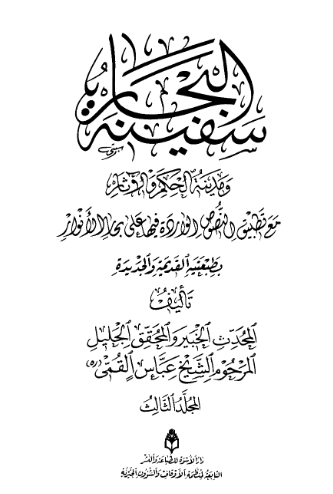 سفينة البحار
ومدينة الحكم والآثار
مع تطبيق النصوص الواردة فيها على بحار الأنوار
بطبعتيه القديمة والجديدة
تأليف
المحدث الخبير والمحقق الجليل
المرحوم الشيخ عباس القمي (ره)
المجلد الثالث
دار الأسوة للطباعة والنشر
التابعة لمنظمة الأوقاف والشؤون الخيرية